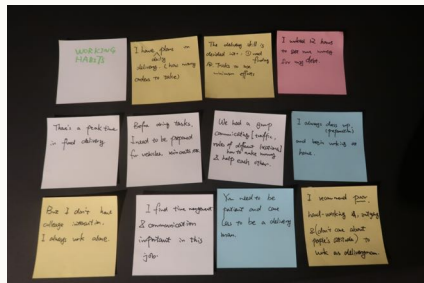 WORKING
HABITS
I have plans in
daily
delivery. (how many
orders to take)
The delivery skill is
divided into: ① road
finding
② tricks to use
minimum efforts
I worked 12 hours
to get more money
for my
There's a peak time
in food delivery.
Before doing tasks,
I need to be prepared
for vehicles, raincoats etc.
We had a group
communicating (traffic,
rules of different locations)
how to make money
& help each other.
I always dress up,
(preparation)
and begin working at
home.
But I don't have
colleague connection.
I always work alone.
I find time management
& communication
important in this
job.
You need to be
patient and care
less to be a delivery
man.
I recommend
hard-working &
& (don't care about
people's attitudes) to
work as deliveryman